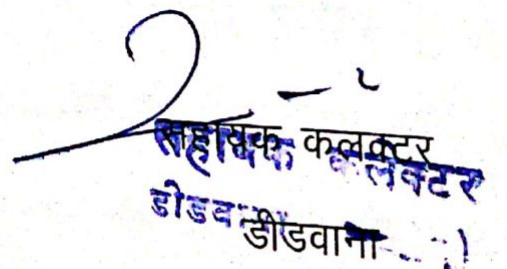 सहायक कलक्टर
सहायक कलक्टर
डीडवाना